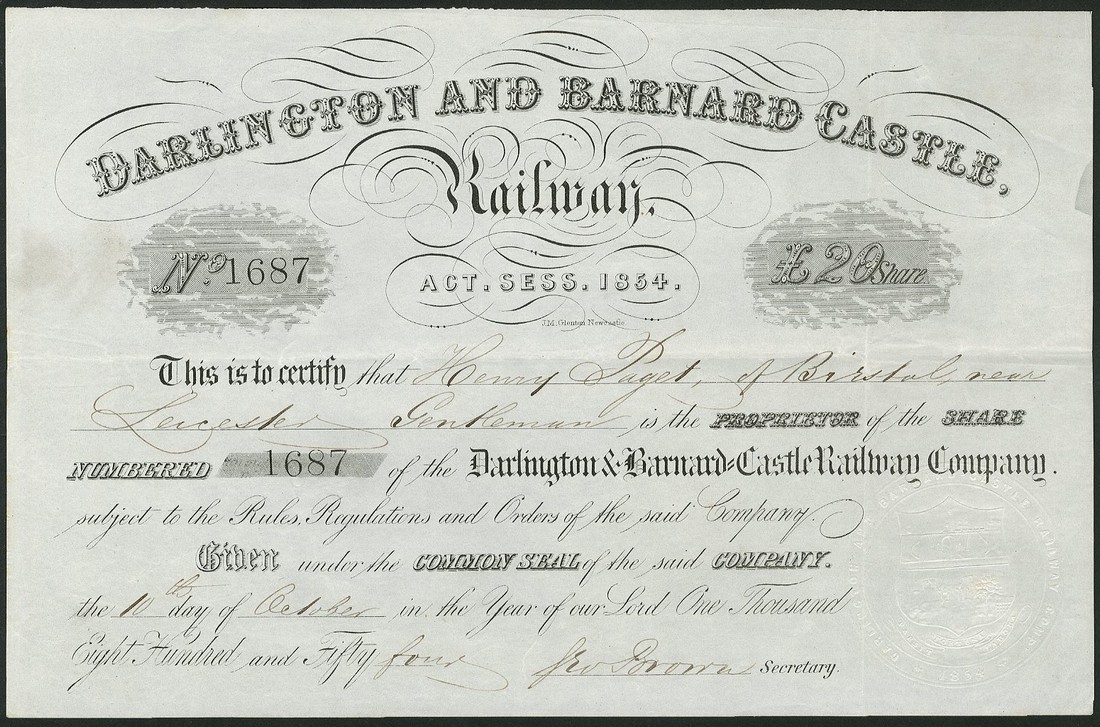 DARLINGTON AND BARNARD CASTLE,
Railway.
No. 1687
£20 Share
ACT. SESS. 1854.
J.M. Glenton Newcastle
This is to certify that Henry Paget, of Birstal, near
Leicester Gentleman is the PROPRIETOR of the SHARE
NUMBERED 1687 of the Darlington & Barnard=Castle Railway Company.
subject to the Rules, Regulations and Orders of the said Company.
Given under the COMMON SEAL of the said COMPANY.
the 10th day of October in the Year of our Lord One Thousand
Eight Hundred and Fifty four Geo Brown Secretary.